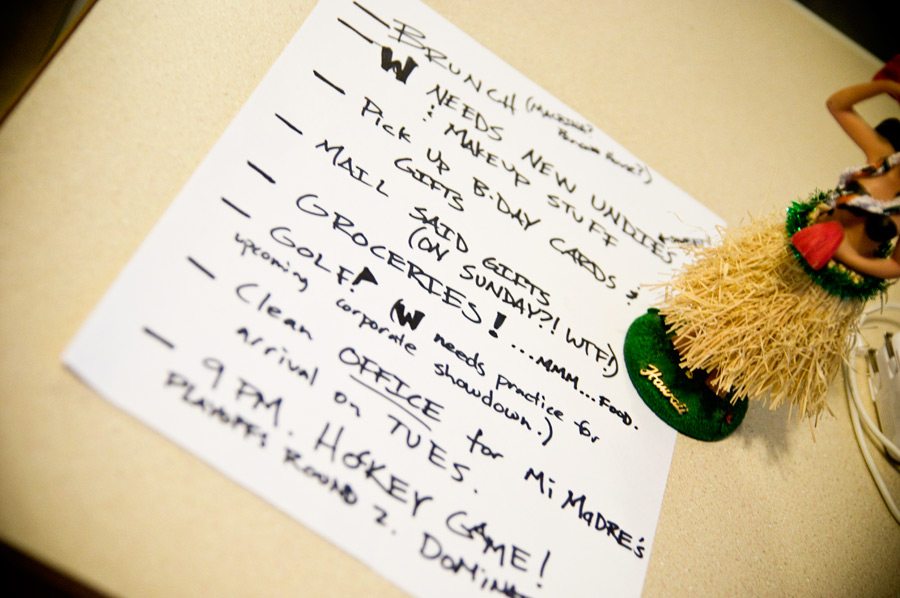 — BRUNCH
— W NEEDS NEW UNDIES
& MAKEUP STUFF
— Pick UP B-DAY CARDS &
GIFTS
— MAIL SAID GIFTS
(ON SUNDAY?! WTF!)
— GROCERIES! ...MMM...FOOD.
— GOLF! (W needs practice for
upcoming corporate showdown.)
— Clean OFFICE for Mi MADRE'S
arrival on TUES.
— 9 PM. HOCKEY GAME!
PLAYOFFS ROUND 2.
Hawaii